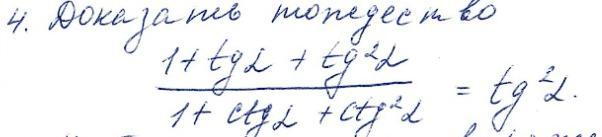 4. Доказать тождество
1+tgα + tg²α
1+ ctgα + ctg²α = tg²α.